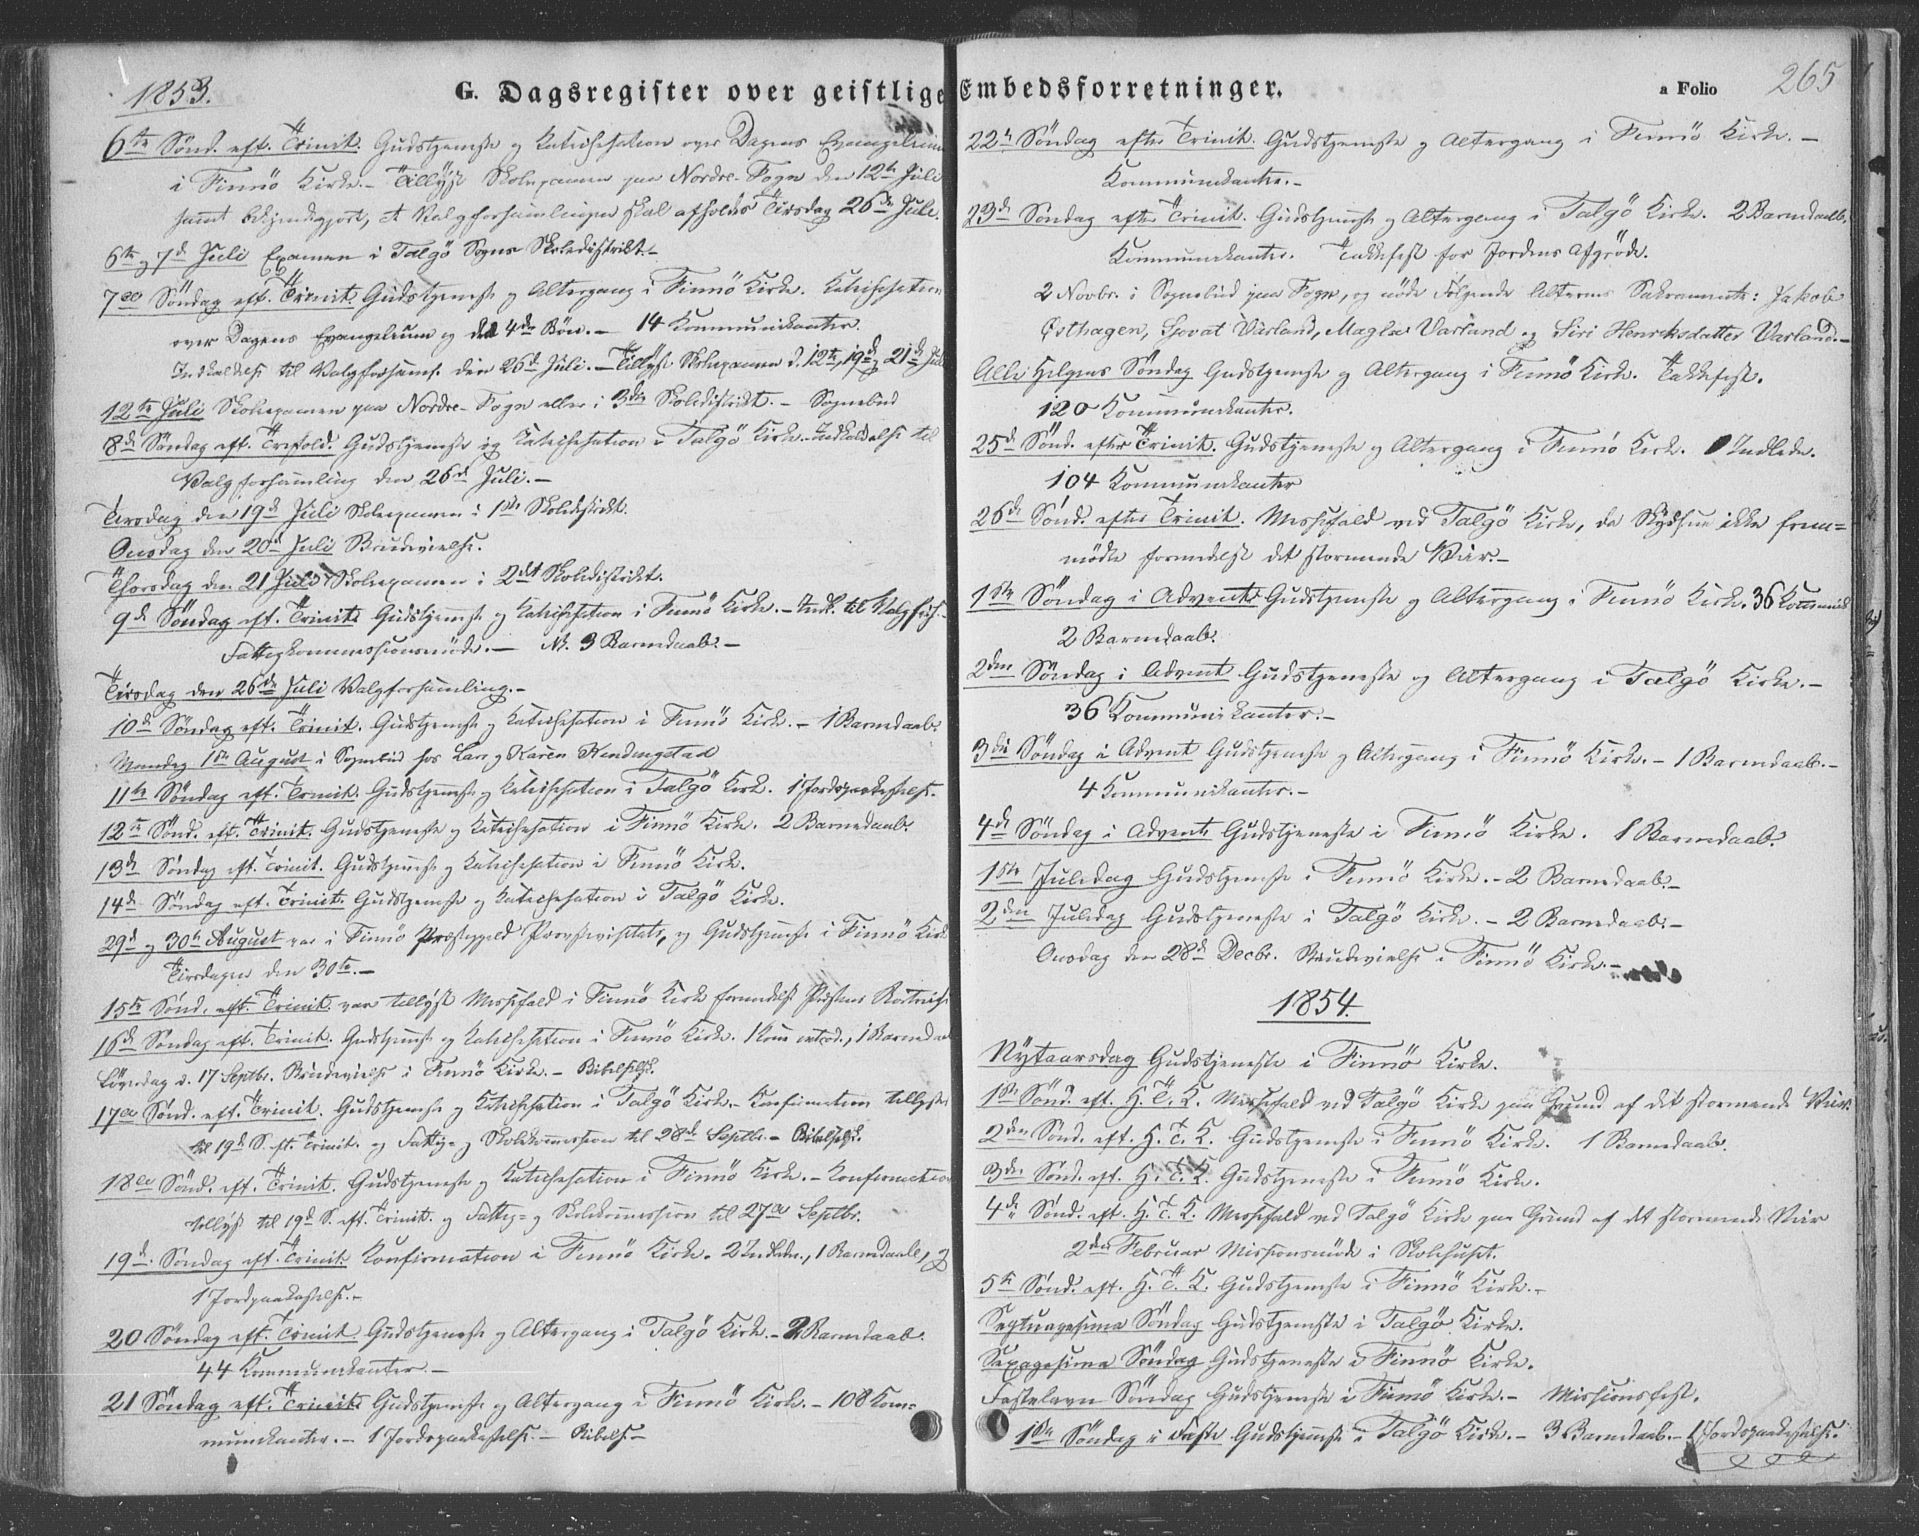 1853.
G. Dagsregister over geistlige Embedsforretninger.
a Folio 265
6te Sönd. eft. Trinit. Gudstjeneste og Katechisation over Dagens Evangelium
i Finnö Kirke. – Tillyst Skoleexamen paa Nordre-Fogn den 12te Juli
samt bekjendtgjort, at Valgforsamlingen skal afholdes Tirsdag 26de Juli.
6te og 7de Juli Examen i Talgö Sogns Skoledistrikt. –
7de Söndag eft. Trinit. Gudstjeneste og Altergang i Finnö Kirke. Katechisation
over Dagens Evangelium og den 4de Bön. – 14 Kommunikanter.
Indkaldelse til Valgforsaml. den 26de Juli. – Tillyst Skoleexamen d. 12te, 19de og 21de Juli
12te Juli Skoleexamen paa Nordre-Fogn eller i 3die Skoledistrikt. – Sognebud
8de Söndag eft. Trefold. Gudstjeneste og Katechisation i Talgö Kirke. Indkaldelse til
Valgforsamling den 26de Juli. –
Tirsdag den 19de Juli Skoleexamen i 1ste Skoledistrikt.
Onsdag den 20de Juli Brudevielse.
Thorsdag den 21 Juli Skoleexamen i 2det Skoledistrikt.
9de Söndag eft. Trinit. Gudstjeneste og Katechisation i Finnö Kirke. – Indk. til Valgfors. –
Fattigkommissionsmöde. – 3 Barnedaab. –
Tirsdag den 26de Juli Valgforsamling. –
10de Söndag eft. Trinit. Gudstjeneste og Katechisation i Finnö Kirke. – 1 Barnedaab.
Mandag 1ste August i Sognebud hos Lars og Karen Hendingstad
11te Söndag eft. Trinit. Gudstjeneste og Katechisation i Talgö Kirke. 1 Jordspaakastelse.
12te Sönd. eft. Trinit. Gudstjeneste og Katechisation i Finnö Kirke. 2 Barnedaab.
13de Söndag eft. Trinit. Gudstjeneste og Katechisation i Finnö Kirke.
14de Söndag eft. Trinit. Gudstjeneste og Katechisation i Talgö Kirke.
29de og 30te August var i Finnö Præstegjeld Provstevisitats, og Gudstjeneste i Finnö Kirke
Tirsdagen den 30te. –
15te Sönd. eft. Trinit. var tillyst Messefald i Finnö Kirke formedelst Præstens
16de Söndag eft. Trinit. Gudstjeneste og Katechisation i Finnö Kirke. 1 Kone introd., 1 Barnedaab
Löverdag d. 17 Septbr. Brudevielse i Finnö Kirke. – Bibelselsk.
17de Sönd. eft. Trinit. Gudstjeneste og Katechisation i Talgö Kirke. – Konfirmation tillyst
til 19de S. eft. Trinit. og Fattig- og Skolekommission til 28de Septbr. – Bibelselsk.
18de Sönd. eft. Trinit. Gudstjeneste og Katechisation i Finnö Kirke. – Konfirmation
tillyst til 19de S. eft. Trinit. og Fattig- og Skolekommission til 27de Septbr.
19de Söndag eft. Trinit. Konfirmation i Finnö Kirke. 2 Indledn., 1 Barnedaab, og
1 Jordpaakastelse. –
20 Söndag eft. Trinit. Gudstjeneste og Altergang i Talgö Kirke. – 2 Barnedaab.
44 Kommunikanter. –
21 Söndag eft. Trinit. Gudstjeneste og Altergang i Finnö Kirke. – 108 Kom=
munikanter. – 1 Jordspaakastelse. – Bibels. –
22de Söndag efter Trinit. Gudstjeneste og Altergang i Finnö Kirke. –
Kommunikanter. –
23de Söndag efter Trinit. Gudstjeneste og Altergang i Talgö Kirke. 2 Barnedaab.
Kommunikanter. Takkefest for Jordens Afgröde.
2 Novbr. i Sognebud paa Fogn, og nöde Fölgende Alterens Sakramente: Jakob
Östhagen, Sjovat Varland, Magla Varland og Siri Henriksdatter Varland. –
Alle Helgens Söndag Gudstjeneste og Altergang i Finnö Kirke. Takkefest.
120 Kommunikanter.
25de Sönd. efter Trinit. Gudstjeneste og Altergang i Finnö Kirke. 1 Indledn.
104 Kommunikanter
26de Sönd. efter Trinit. Messefald ved Talgö Kirke, da Skydsen ikke frem=
mödte formedelst det stormende Veir. –
1ste Söndag i Advent Gudstjeneste og Altergang i Finnö Kirke. 36 Kommunik
2 Barnedaab.
2den Söndag i Advent Gudstjeneste og Altergang i Talgö Kirke. –
36 Kommunikanter. –
3die Söndag i Advent Gudstjeneste og Altergang i Finnö Kirke. – 1 Barnedaab. –
4 Kommunikanter. –
4de Söndag i Advent Gudstjeneste i Finnö Kirke. 1 Barnedaab.
1ste Juledag Gudstjeneste i Finnö Kirke. – 2 Barnedaab. –
2den Juledag Gudstjeneste i Talgö Kirke. – 2 Barnedaab. –
Onsdag den 28de Decbr. Brudevielse i Finnö Kirke. –
1854.
Nytaarsdag Gudstjeneste i Finnö Kirke.
1ste Sönd. eft. H. T. K. Messefald ved Talgö Kirke paa Grund af det stormende Veir.
2den Sönd. eft. H. T. K. Gudstjeneste i Finnö Kirke. 1 Barnedaab.
3die Sönd. eft. H. T. K. Gudstjeneste i Finnö Kirke.
4de Sönd. eft. H. T. K. Messefald ved Talgö Kirke paa Grund af det stormende Veir
2den Februar Missionsmöde i Skolehuset.
5te Sönd. eft. H. T. K. Gudstjeneste i Finnö Kirke. –
Septuagesima Söndag Gudstjeneste i Talgö Kirke.
Sexagesima Söndag Gudstjeneste i Finnö Kirke.
Fastelavn Söndag Gudstjeneste i Finnö Kirke. – Missionsfest.
1ste Söndag i Faste Gudstjeneste i Talgö Kirke. – 3 Barnedaab. – 1 Jordspaakastelse.